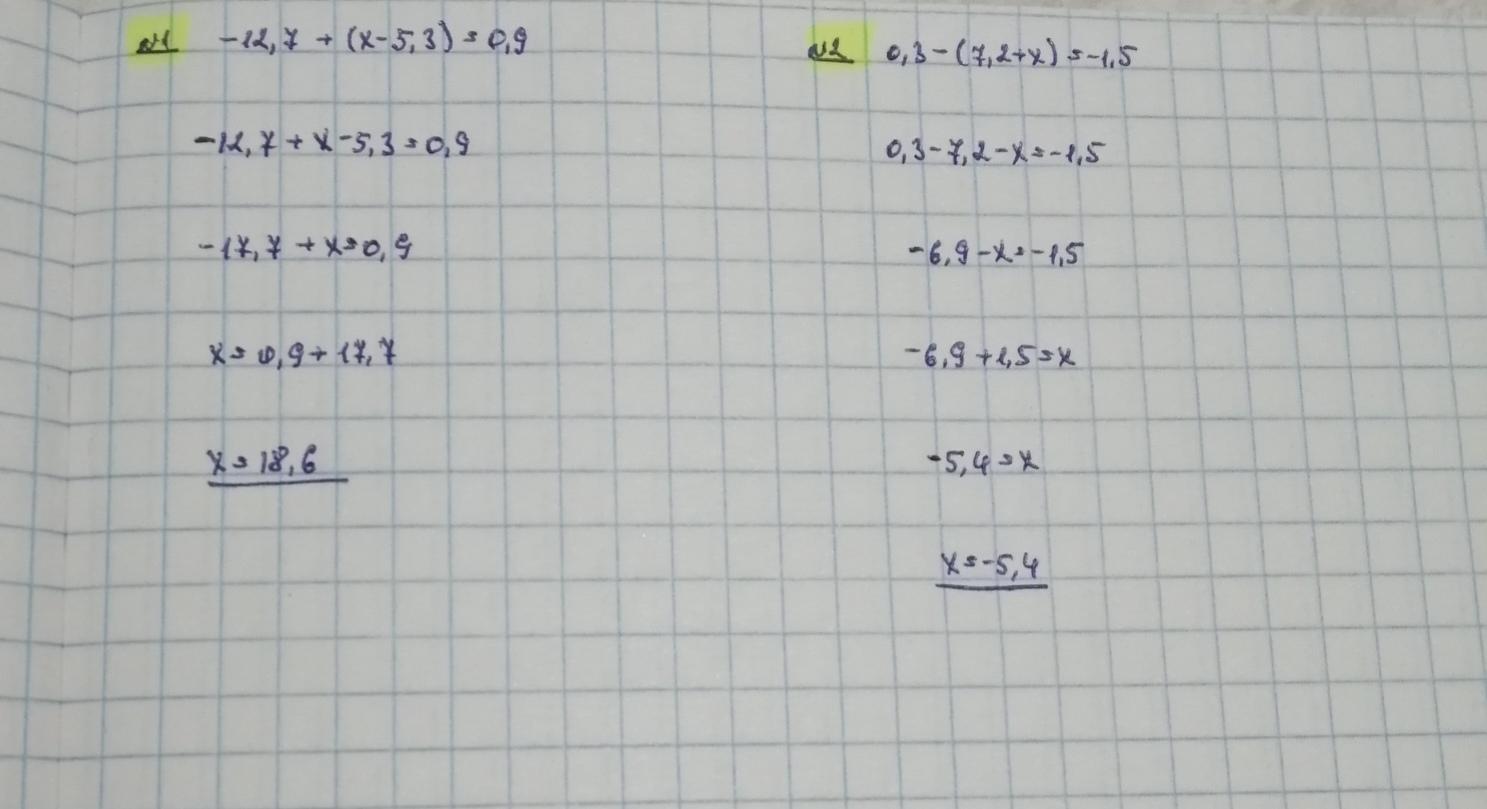 №1 -12,7 + (x-5,3) = 0,9
-12,7 + x-5,3 = 0,9
-17,7 + x = 0,9
x = 0,9 + 17,7
x = 18,6
№2 0,3 - (7,2+x) = -1,5
0,3 - 7,2 - x = -1,5
-6,9 - x = -1,5
-6,9 + 1,5 = x
-5,4 = x
x = -5,4